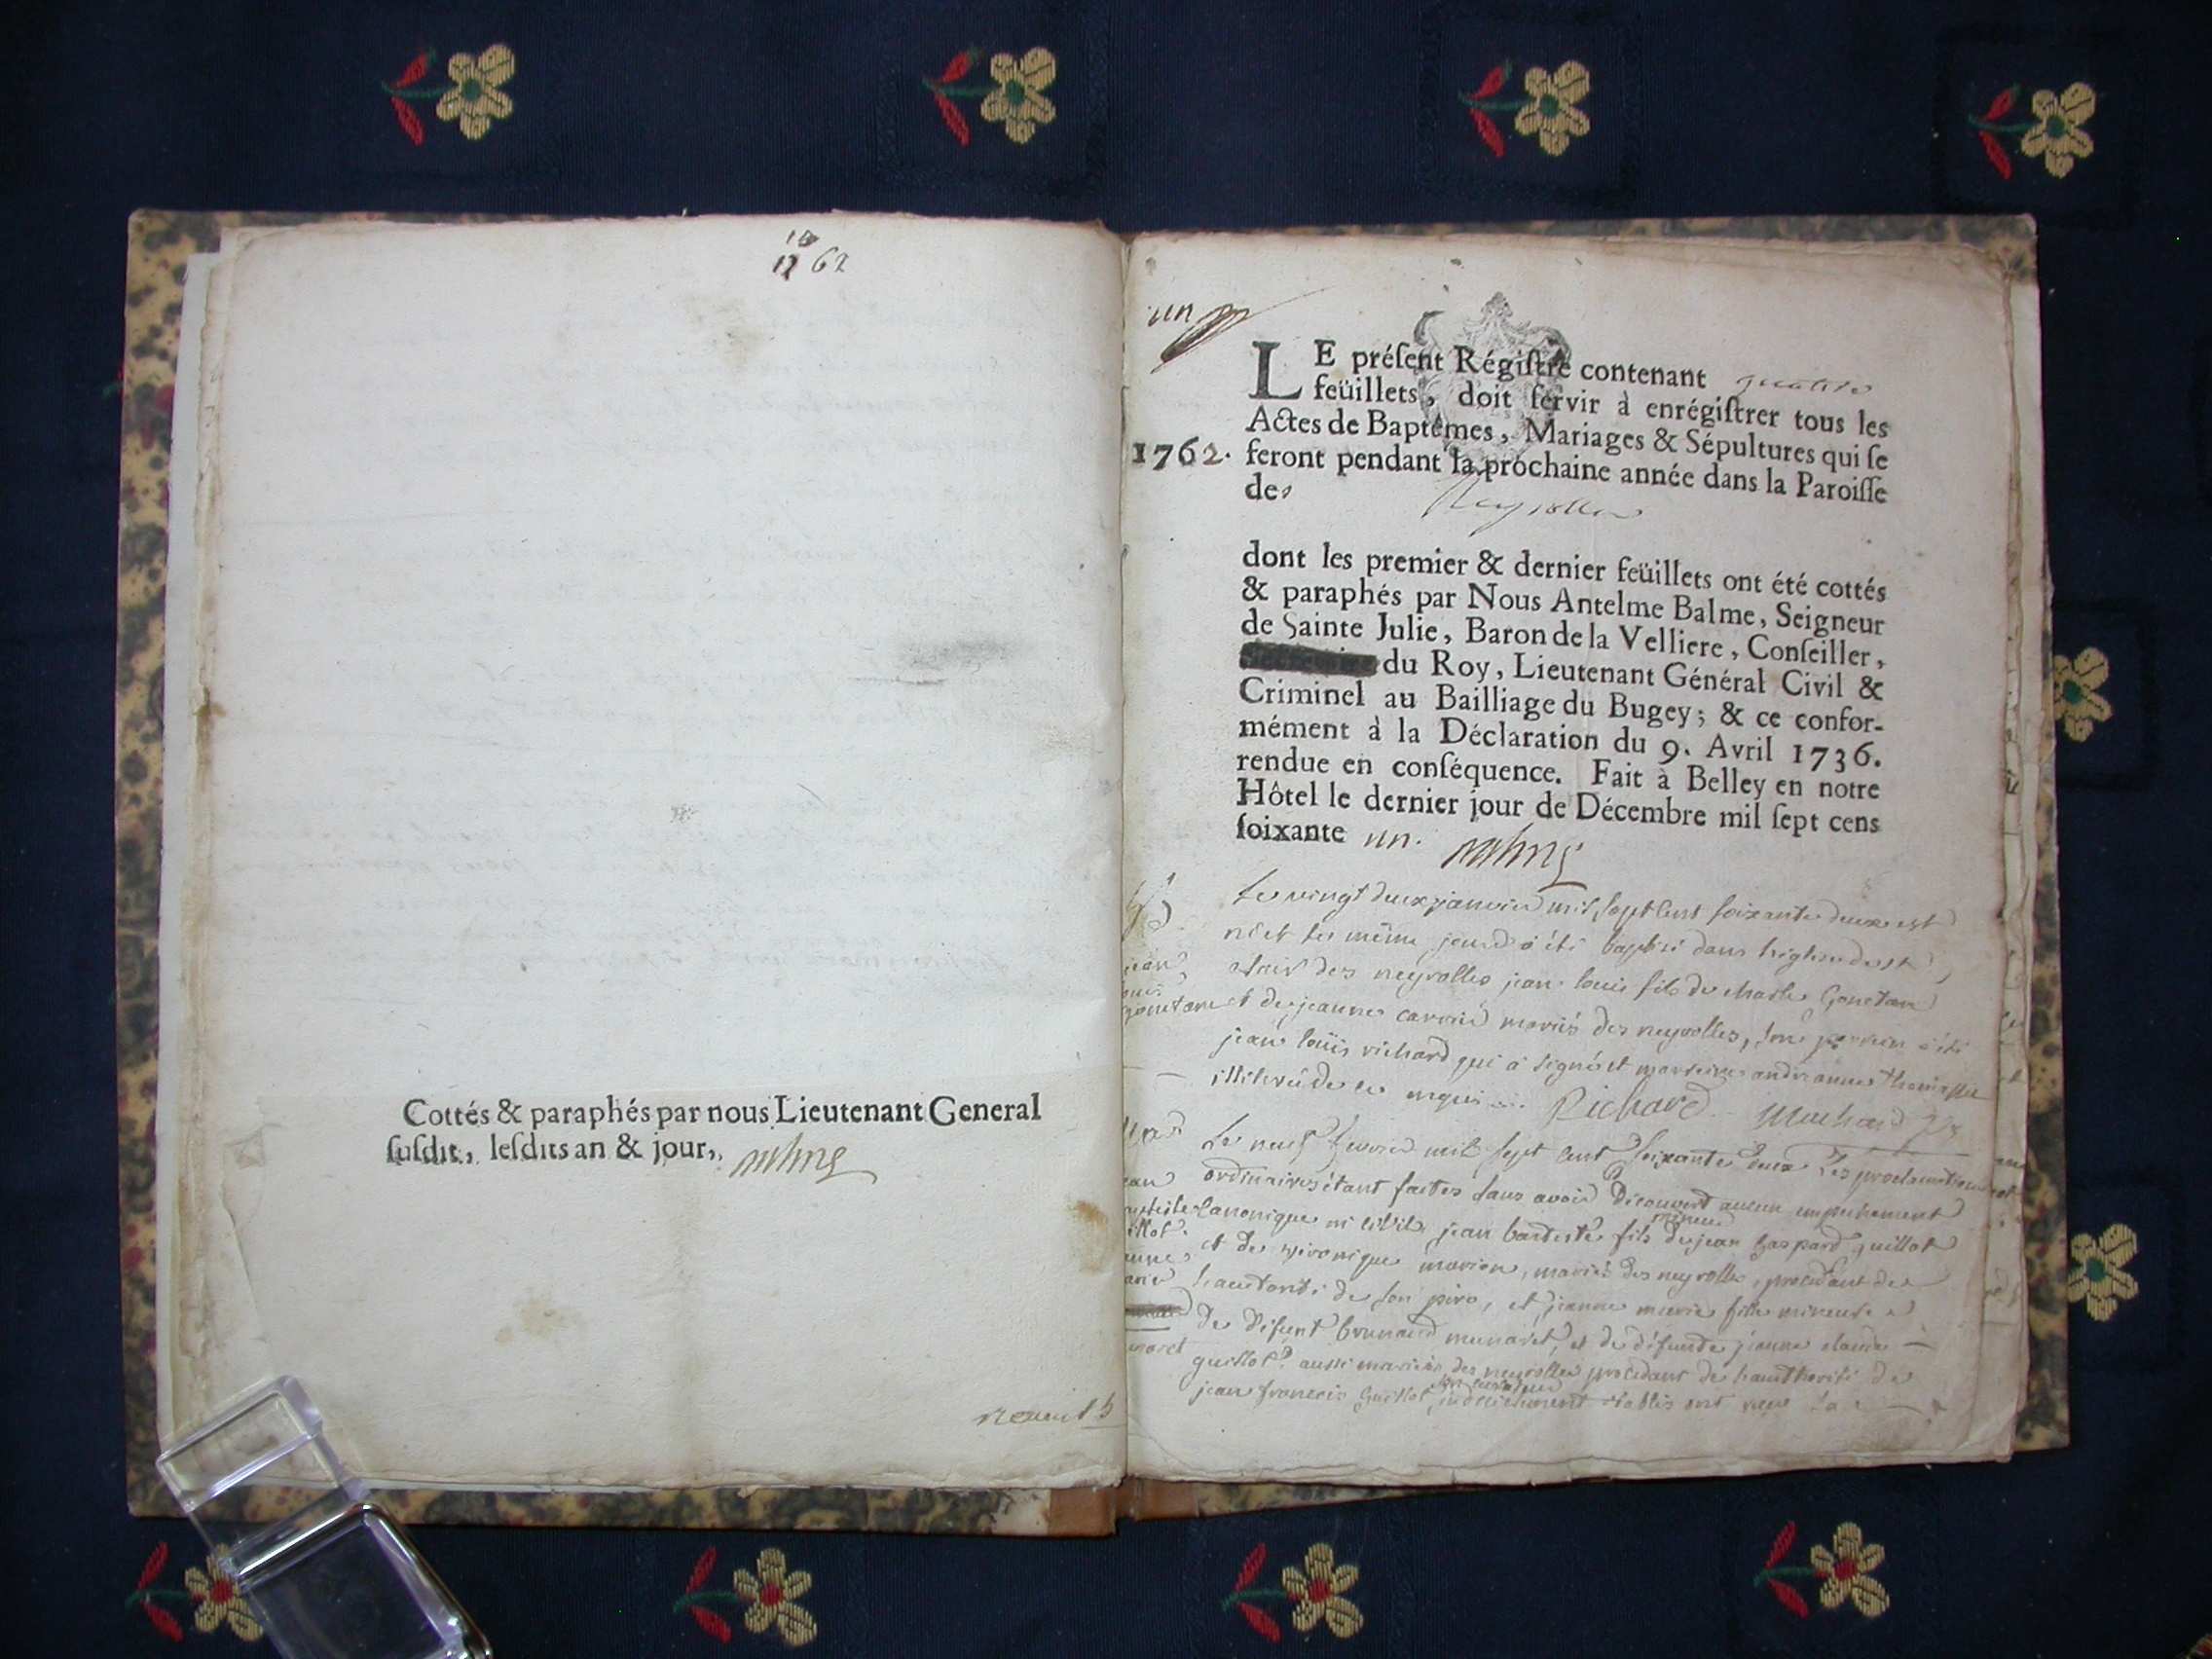 1762
Cottés & paraphés par nous Lieutenant General
ſuſdit, leſdits an & jour,
un
LE préſent Régiſtre contenant quatre
feüillets, doit ſervir à enrégiſtrer tous les
Actes de Baptêmes, Mariages & Sépultures qui ſe
1762. feront pendant la prochaine année dans la Paroiſſe
des Neyrolles
dont les premier & dernier feüillets ont été cottés
& paraphés par Nous Antelme Balme, Seigneur
de Sainte Julie, Baron de la Velliere, Conſeiller,
du Roy, Lieutenant Général Civil &
Criminel au Bailliage du Bugey; & ce confor-
mément à la Déclaration du 9. Avril 1736.
rendue en conſéquence. Fait à Belley en notre
Hôtel le dernier jour de Décembre mil ſept cens
ſoixante un.
Le vingt deux janvier mil sept cent soixante deux est
né et le même jour a été baptisé dans l'eglise de st
clair des neyrolles jean louis fils de charle Gonetan
et de jeanne carrier mariés des neyrolles, son parrein a été
jean loüis richard qui a signé et marreine andreanne
illiterée de ce requise. Richard
Le neuf fevrier mil sept cent soixante deux Les proclamations
ordinaires étant faites sans avoir découvert aucun empechement
canonique ni civil, jean batiste fils mineur de jean gaspard guillot
et de veronique marion, mariés des neyrolles, procedant de
l'autorité de son père, et jeanne marie fille mineure
de défunt et de défunte jeanne claudine
guillot aussi mariés des neyrolles procedant de l'authorité de
jean francois Guillot son curateur établis ont reçu la